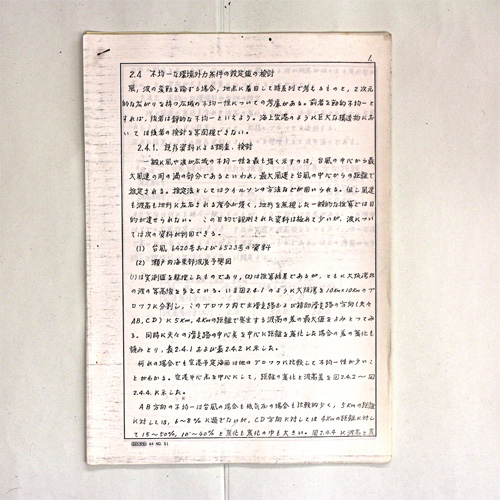 1
2.4 不均一な環境外力条件の設定値の検討
風,波の変動を論ずる場合,地点に着目して時系列で考えるものと,2次元
的な広がりを持つ広域の不均一性についての考慮がある。前者を動的不均一と
すれば,後者は静的な不均一といえよう。海上空港のように巨大な構造物にお
いては後者の検討を等閑視できない。
2.4.1. 既存資料による調査,検討
一般に風や波が広域の不均一性を最も強く示すのは,台風の中心から最
大風速の周の渦の部分であるといわれ,最大風速と台風の中心からの距離で
推定される。推定法としてはウイルソンの方法などが用いられる。但し風速
も波高も地形に左右される度合が強く,地形を無視した一般的な推算では目
的が達せられない。この目的で観測された資料は極めて少いが,波につい
ては次の資料が利用できる。
(1) 台風6420号および6523号の資料
(2) 瀬戸内海東部波浪予察図
(1)は実測値を整理したものであり,(2)は推算結果であるが,ともに大阪湾北
の波の等高線を与えている。いま図2.4.1のように大阪湾を10Km×10Kmのブ
ロックに分割し,このブロック内で主滑走路および補助滑走路の方向(夫々
AB,CD)に5Km,4Kmの距離で発生する波高の差の最大値をよみとってみ
る。同時に夫々の滑走路の中心点を中心に距離を変化した場合の差の変化も
読みとり,表2.4.1および表2.4.2に示した。
何れの場合でも空港予定海面は他のブロックに比較して不均一性が少いこ
とがわかる。空港中心点を中心にして,距離の変化と波高差を図2.4.2〜図
2.4.4に示した。
AB方向の不均一は台風の場合も低気圧の場合も比較的少く,5Kmの距離
に対しては,6〜8%に過ぎないが,CD方向に対しては4Kmの距離に対し
て15〜50%,10〜40%と変化も変化の巾も大きい。図2.4.4に波高と